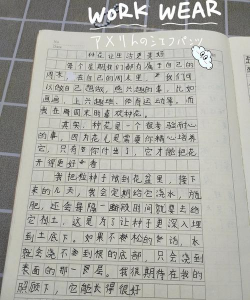 WORK WEAR
アメリトのシェフパンツ
种花让生活更美好
每个星期我们都有属于自己的
周末，在自己的周末里，我们可
以做自己想做，感兴趣的事，比如
画画，上兴趣班，体育运动等，而
我在周周末时喜欢种花。
其实，种花是一个很考验耐心
的事，因为花儿是需要你精心培养
它，只有当你付出，它才能把花
开得更好看
我把种子放到花盆里，接下
来的几天，我会定期给它浇水，施
肥，还会每隔一段时间就要去给
它松土，这是为了让种子更深入埋
到土底下。如果不松的话，水
就会浇不到根的底部，只会浇到
表面的那一层。我很期待在我的
照顾下，它能长得很好